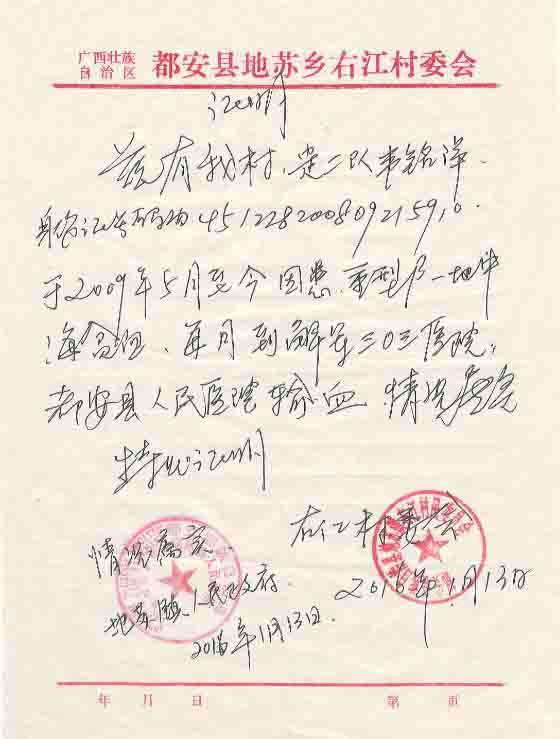 广西壮族
自治区
都安县地苏乡右江村委会
证明
兹有我村, 党二队韦铭洋.
身份证号码为
于2009年5月至今因患重型β一地中
海贫血、每月到解军三〇三医院;
都安县人民医院输血 情况属实
特此证明
右江村委会
2016年1月13日
情况属实.
地苏镇人民政府.
2016年1月13日.
年 月 日
第 页